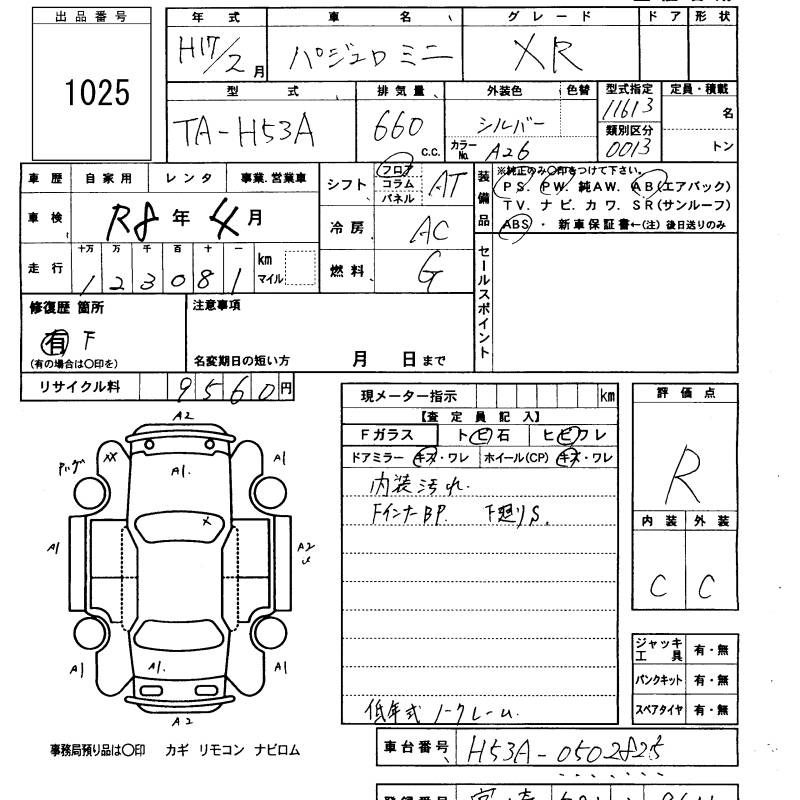 出品番号
1025
年式 車名 グレード ドア 形状
H17/2月 パジェロミニ XR
型式 排気量 外装色 色替 型式指定 定員・積載
TA-H53A 660 c.c. シルバー カラーNo. A26 11613 名
類別区分 0013 トン
車歴 自家用 レンタ 事業.営業車
車検 R8年4月
走行 十万 万 千 百 十 一
123081 km マイル
シフト フロア コラム パネル AT
冷房 AC
燃料 G
装備品
※純正のみ〇印をつけて下さい。
PS. PW. 純AW. AB(エアバック)
TV. ナビ. カワ. SR(サンルーフ)
ABS ・ 新車保証書←(注) 後日送りのみ
セールスポイント
修復歴 箇所
有 F
(有の場合は〇印を)
注意事項
名変期日の短い方 月 日まで
リサイクル料 9560円
現メーター指示 km
【査定員記入】
Fガラス トビ石 ヒビワレ
ドアミラー キズ・ワレ ホイール(CP) キズ・ワレ
内装汚れ.
FインナーBP. F廻りS.
低年式ノークレーム.
評価点
R
内装 外装
C C
ジャッキ工具 有・無
パンクキット 有・無
スペアタイヤ 有・無
A2
XX
A1.
A1
X
A1
A2
A1
A1.
A1
A2
事務局預り品は〇印 カギ リモコン ナビロム
車台番号 H53A-0502825